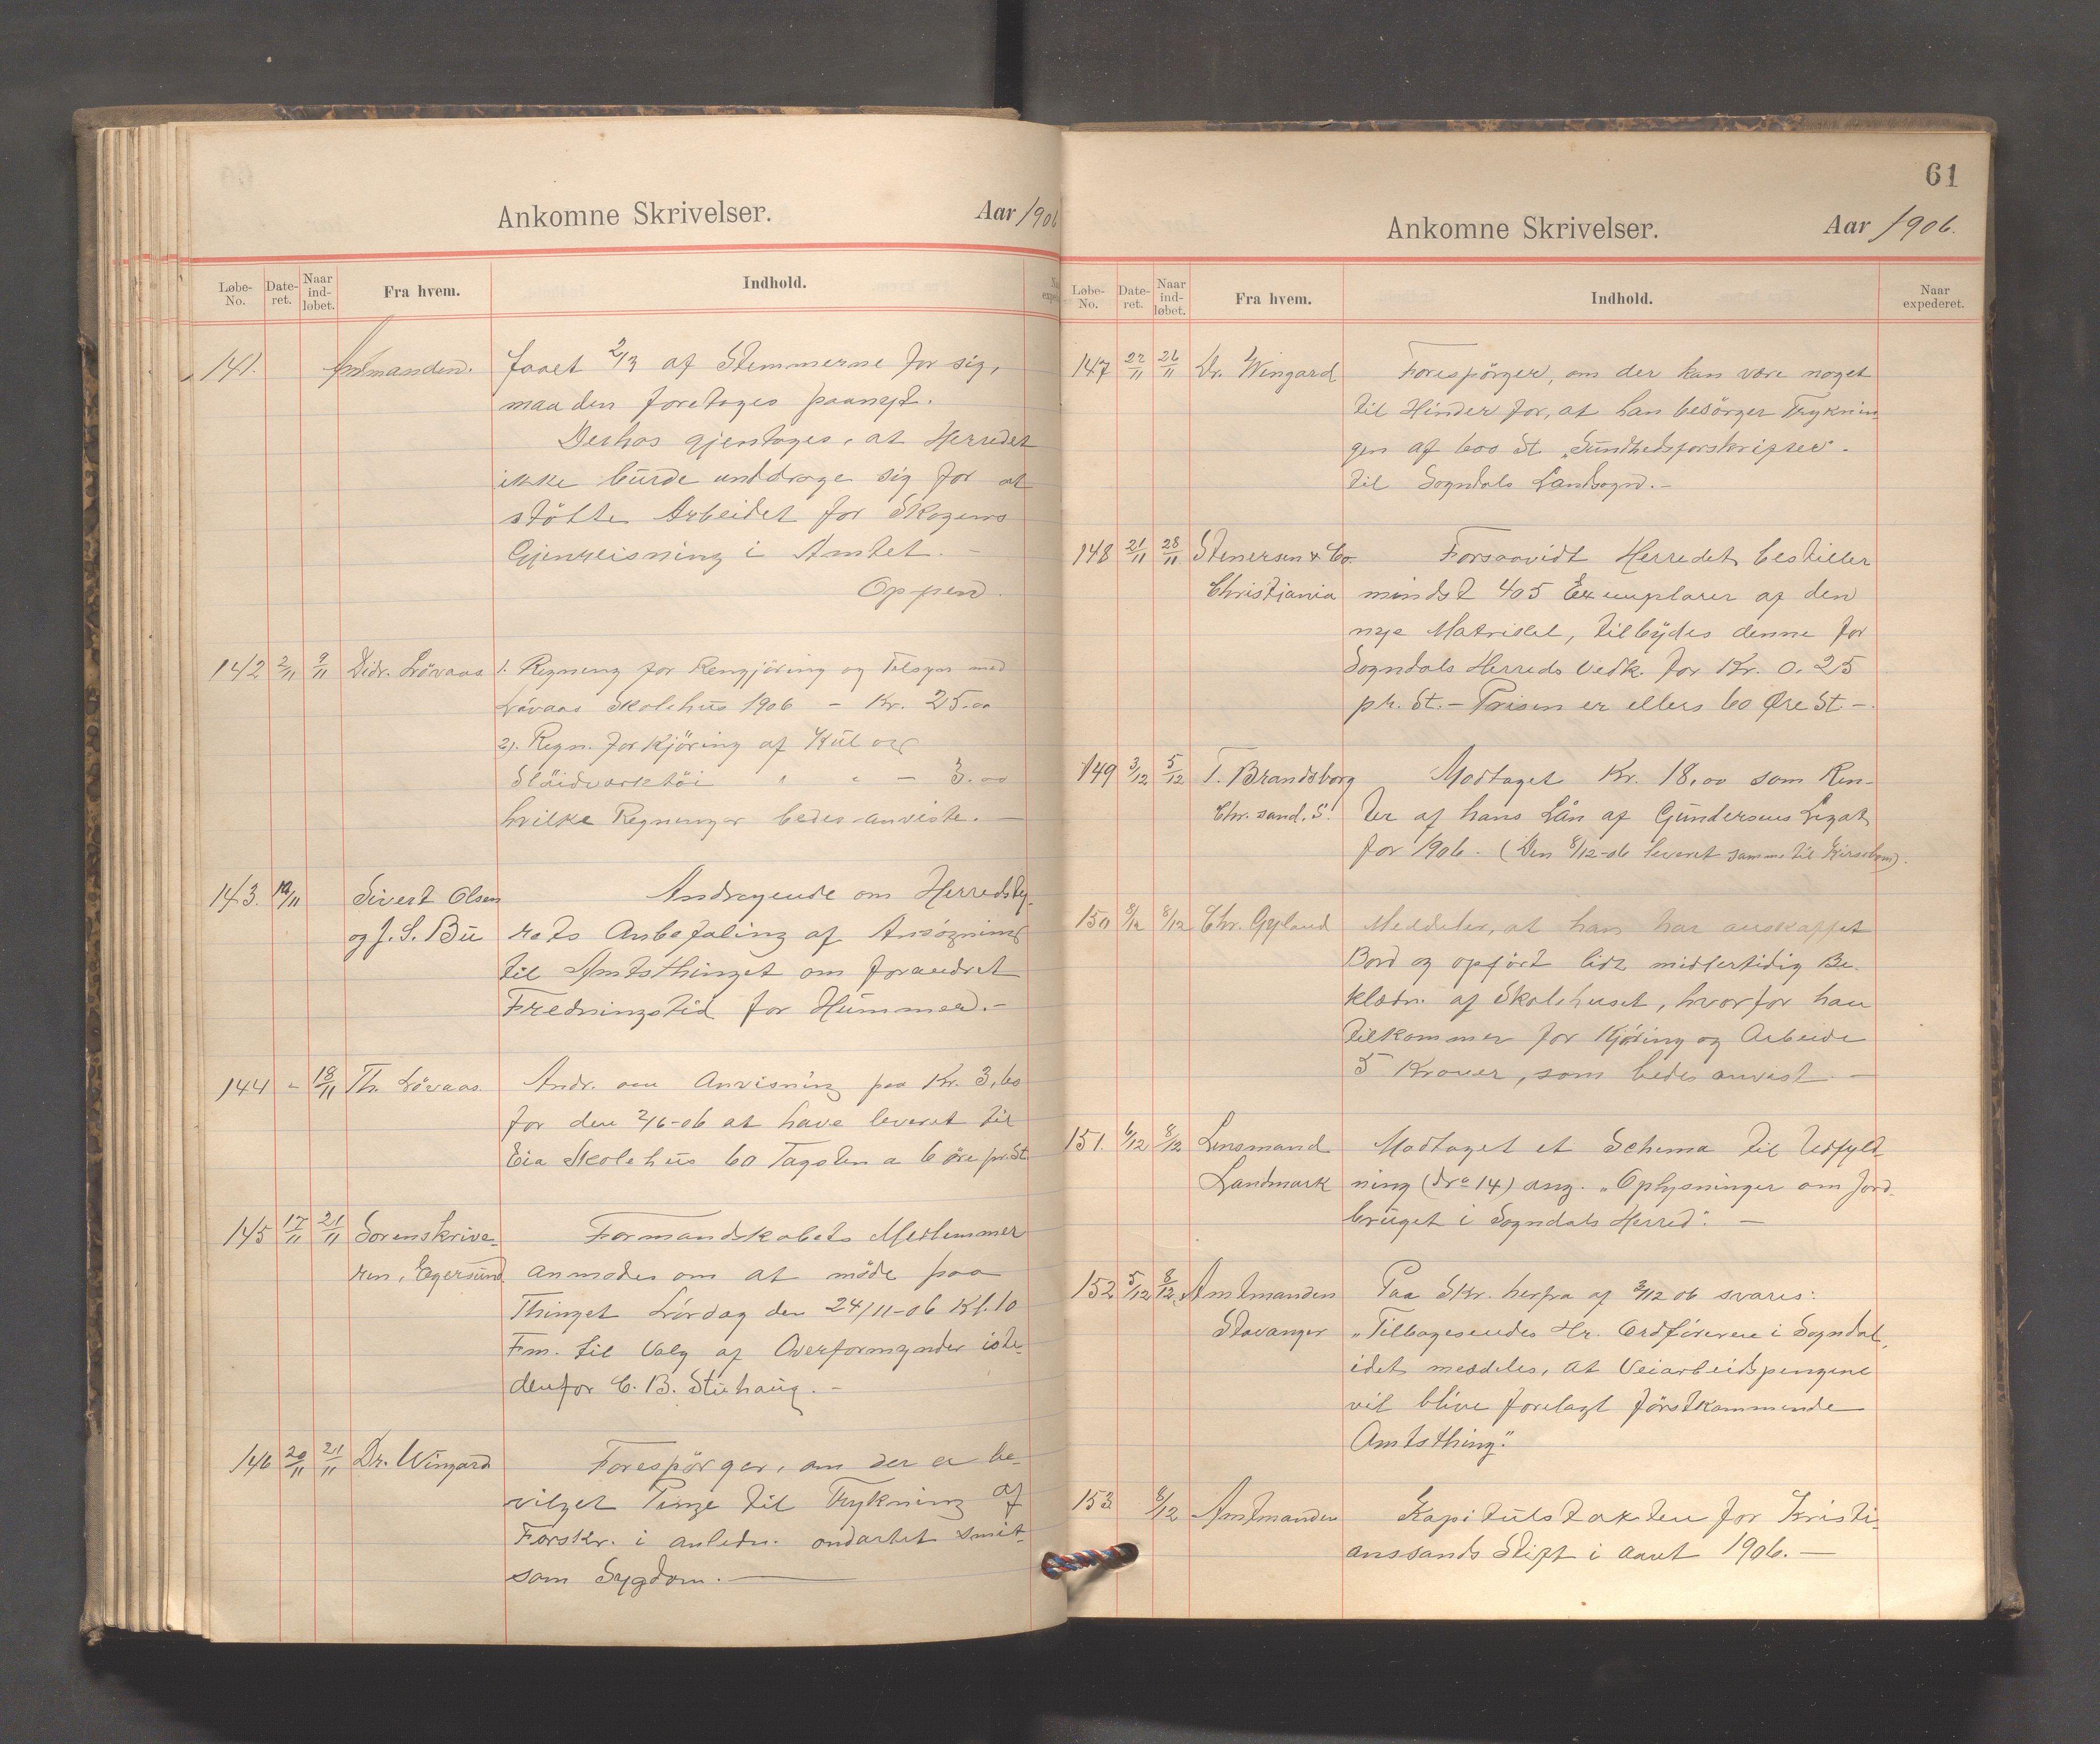 Ankomne Skrivelser.
Aar 1906
Løbe-No. Date-ret. Naar ind-løbet. Fra hvem. Indhold.
141. Amtmanden. faaet 2/3 af Stemmerne for sig,
maa den foretages paanyt.
Derhos gjentages, at Herredet
ikke burde unddrage sig for at
støtte Arbeidet for Skogens
Gjenreisning i Amtet. -
Oppen.
142 2/11 9/11 Didr. Lövaas 1. Regning for Rengjöring og Tilsyn med
Lövaas Skolehus 1906 - Kr. 25.00
2). Regn. for Kjöring af Kul og
Slöidværktöi " " - 3.00
hvilke Regninger bedes anviste. -
143. 12/11 Sivert Olsen Andragende om Herredsty-
og J. S. Bu rets Anbefaling af Ansögning
til Amtsthinget om forandret
Fredningstid for Hummer. -
144 - 18/11 Th. Lövaas. Andr. om Anvisning paa Kr. 3,60
for den 2/6-06 at have leveret til
Eia Skolehus 60 Tagsten a 6 öre pr. St.
145 17/11 21/11 Sorenskrive- Formandskabets Medlemmer
ren, Egersund anmodes om at möde paa
Thinget Lördag den 24/11-06 Kl. 10
Fm. til Valg af Overformynder iste-
denfor C. B. Stuhaug. -
146 20/11 21/11 Dr. Wingard Forespörger, om der er be-
vilget Penge til Trykning af
Forskr. i anledn. ondartet smit-
som Sygdom. -
61
Ankomne Skrivelser.
Aar 1906.
Løbe-No. Date-ret. Naar ind-løbet. Fra hvem. Indhold. Naar expederet.
147 22/11 26/11 Dr. Wingard Forespörger, om der kan være noget
til Hinder for, at han besörger Tryknin-
gen af 600 St. „Sundhedsforskrifter"
til Sogndals Landsogn. -
148 21/11 28/11 Stenersen & Co. Forsaavidt Herredet bestiller
Christiania mindst 405 Exemplarer af den
nye Matrikel, tilbydes denne for
Sogndals Herreds Vedk. for Kr. 0.25
pr. St. - Prisen er ellers 60 Øre St. -
149 3/12 5/12 T. Brandsborg Modtaget Kr. 18,00 som Ren-
Chr.sand. S. ter af hans Lån af Gundersens Legat
for 1906. (Den 8/12-06 leveret samme til Kirsebom).
150 8/12 8/12 Chr. Gyland Meddeler, at han har anskaffet
Bord og opfört lidt midlertidig Be-
klædn. af Skolehuset, hvorfor han
tilkommer for Kjöring og Arbeide
5 Kroner, som bedes anvist. -
151. 6/12 8/12 Lensmand Modtaget et Schema til Udfyld-
Landmark ning (No 14) ang. „Oplysninger om Jord-
bruget i Sogndals Herred". -
152 5/12 8/12 Amtmanden Paa Skr. herfra af 3/12 06 svares:
Stavanger „Tilbagesendes Hr. Ordföreren i Sogndal,
idet meddeles, at Veiarbeidspengene
vil blive forelagt förstkommende
Amtsthing".
153 8/12 Amtmanden Kapitulstakten for Kristi-
anssands Stift i aaret 1906. -